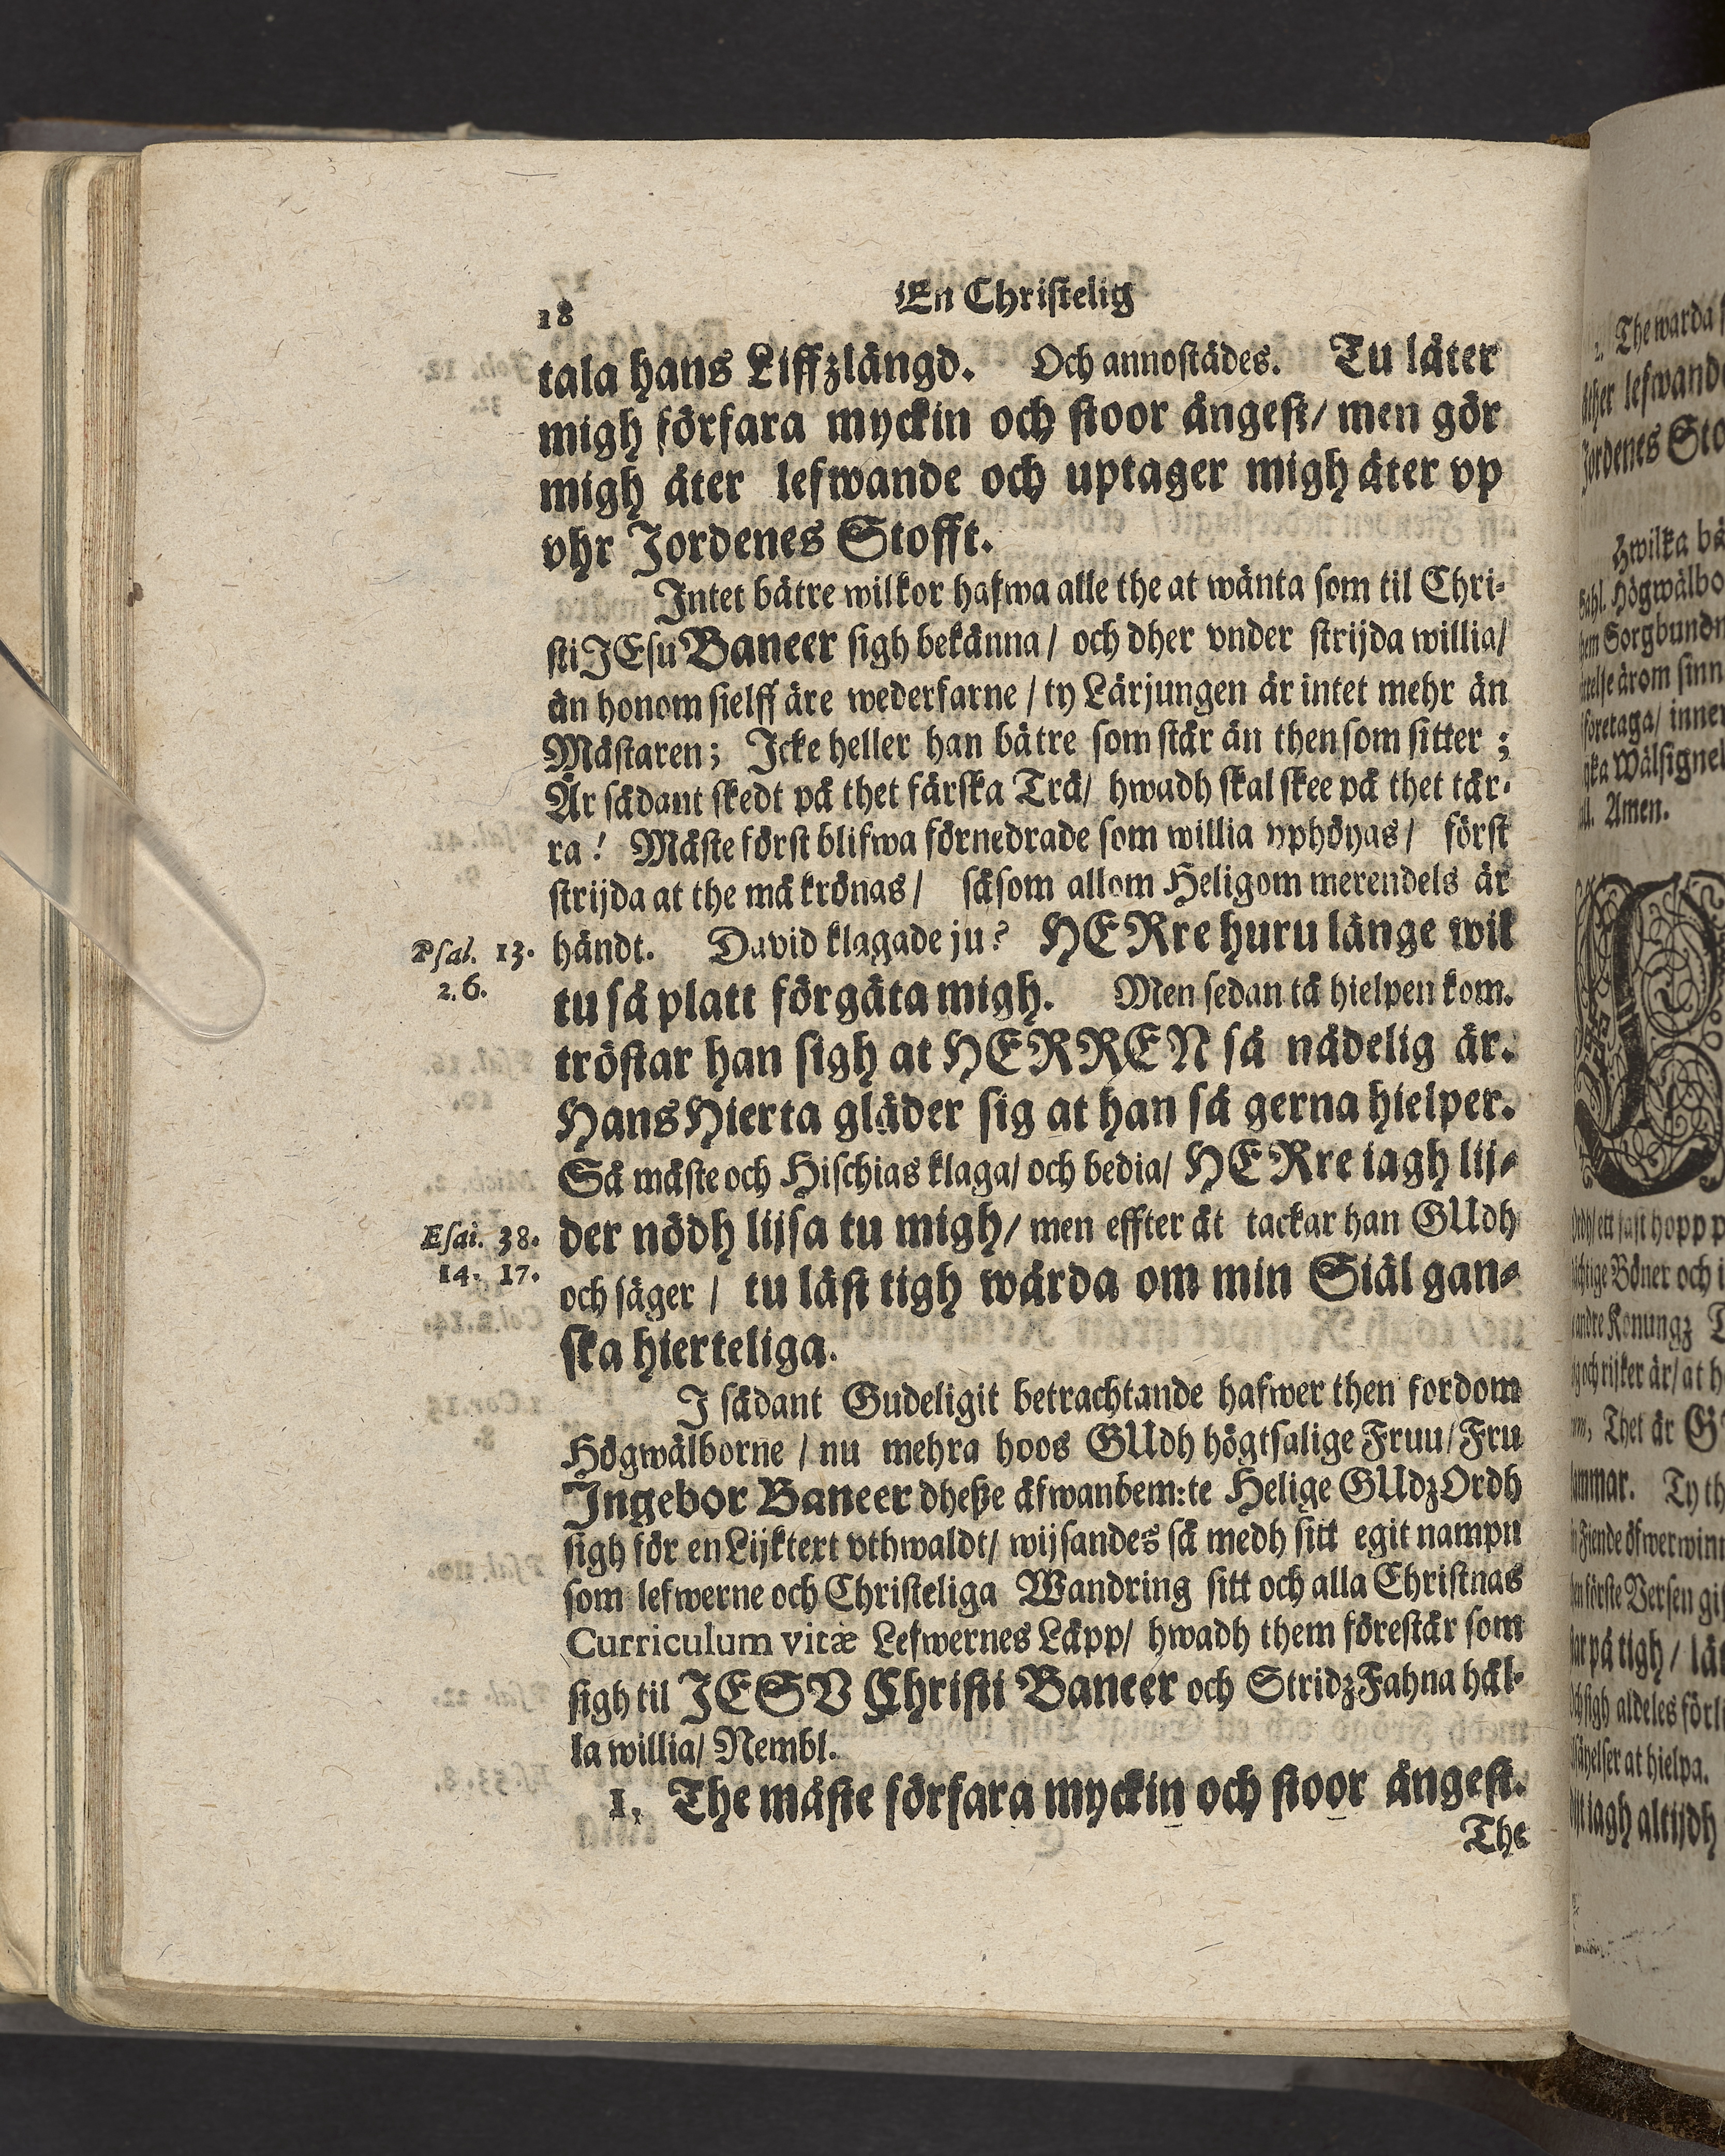 18
En Christelig
tala hans Liffzlängd. Och annostädes. Tu låter
migh förfara myckin och stoor ångest/ men gör
migh åter lefwande och uptager migh åter vp
vhr Jordenes Stofft.
Intet bätre wilkor hafwa alle the at wänta som til Chri-
sti JEsu Baneer sigh bekänna/ och dher vnder strijda willia/
än honom sielff äre wederfarne / ty Lärjungen är intet mehr än
Mästaren; Icke heller han bätre som står än then som sitter ;
Är sådant skedt på thet färska Trä/ hwadh skal skee på thet tår-
ra! Måste först blifwa förnedrade som willia vphöyas/ först
strijda at the må krönas/ såsom allom Heligom merendels är
Psal. 13. händt. David klagade ju? HERre huru länge wil
2. 6. tu så platt förgäta migh. Men sedan tå hielpen kom.
tröstar han sigh at HERREN så nådelig är.
Hans Hierta gläder sig at han så gerna hielper.
Så måste och Hischias klaga/ och bedia/ HERre iagh lij-
Esai. 38. der nödh lijsa tu migh/ men effter åt tackar han GUdh
14. 17. och säger / tu läst tigh wårda om min Siäl gan-
ska hierteliga.
I sådant Gudeligit betrachtande hafwer then fordom
Högwälborne / nu mehra hoos GUdh högtsalige Fruu/ Fru
Ingebor Baneer dheße åfwanbem:te Helige GUdz Ordh
sigh för en Lijktext vthwaldt/ wijsandes så medh sitt egit nampn
som lefwerne och Christeliga Wandring sitt och alla Christnas
Curriculum vitæ Lefwernes Läpp/ hwadh them förestår som
sigh til JESV Christi Baneer och StridzFahna hål-
la willia/ Nembl.
1. The måste förfara myckin och stoor ångest.
The